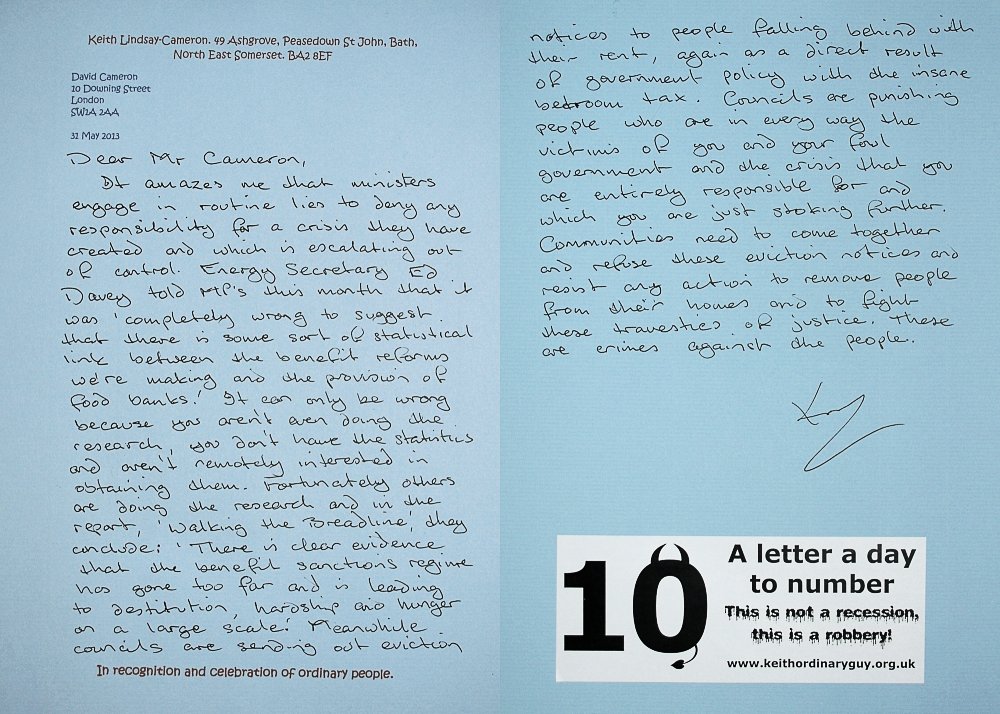 Keith Lindsay-Cameron. 49 Ashgrove, Peasedown St John, Bath,
North East Somerset. BA2 8EF
David Cameron
10 Downing Street
London
SW1A 2AA
31 May 2013
Dear Mr Cameron,
It amazes me that ministers
engage in routine lies to deny any
responsibility for a crisis they have
created and which is escalating out
of control. Energy Secretary Ed
Davey told MP's this month that it
was 'completely wrong to suggest
that there is some sort of statistical
link between the benefit reforms
we're making and the provision of
food banks.' It can only be wrong
because you aren't even doing the
research, you don't have the statistics
and aren't remotely interested in
obtaining them. Fortunately others
are doing the research and in the
report, 'Walking the Breadline', they
conclude: 'There is clear evidence
that the benefit sanctions regime
has gone too far and is leading
to destitution, hardship and hunger
on a large scale.' Meanwhile
councils are sending out eviction
In recognition and celebration of ordinary people.
notices to people falling behind with
their rent, again as a direct result
of government policy with the insane
bedroom tax. Councils are punishing
people who are in every way the
victims of you and your foul
government and the crisis that you
are entirely responsible for and
which you are just stoking further.
Communities need to come together
and refuse these eviction notices and
resist any action to remove people
from their homes and to fight
these travesties of justice. These
are crimes against the people.
10
A letter a day
to number
This is not a recession,
this is a robbery!
www.keithordinaryguy.org.uk